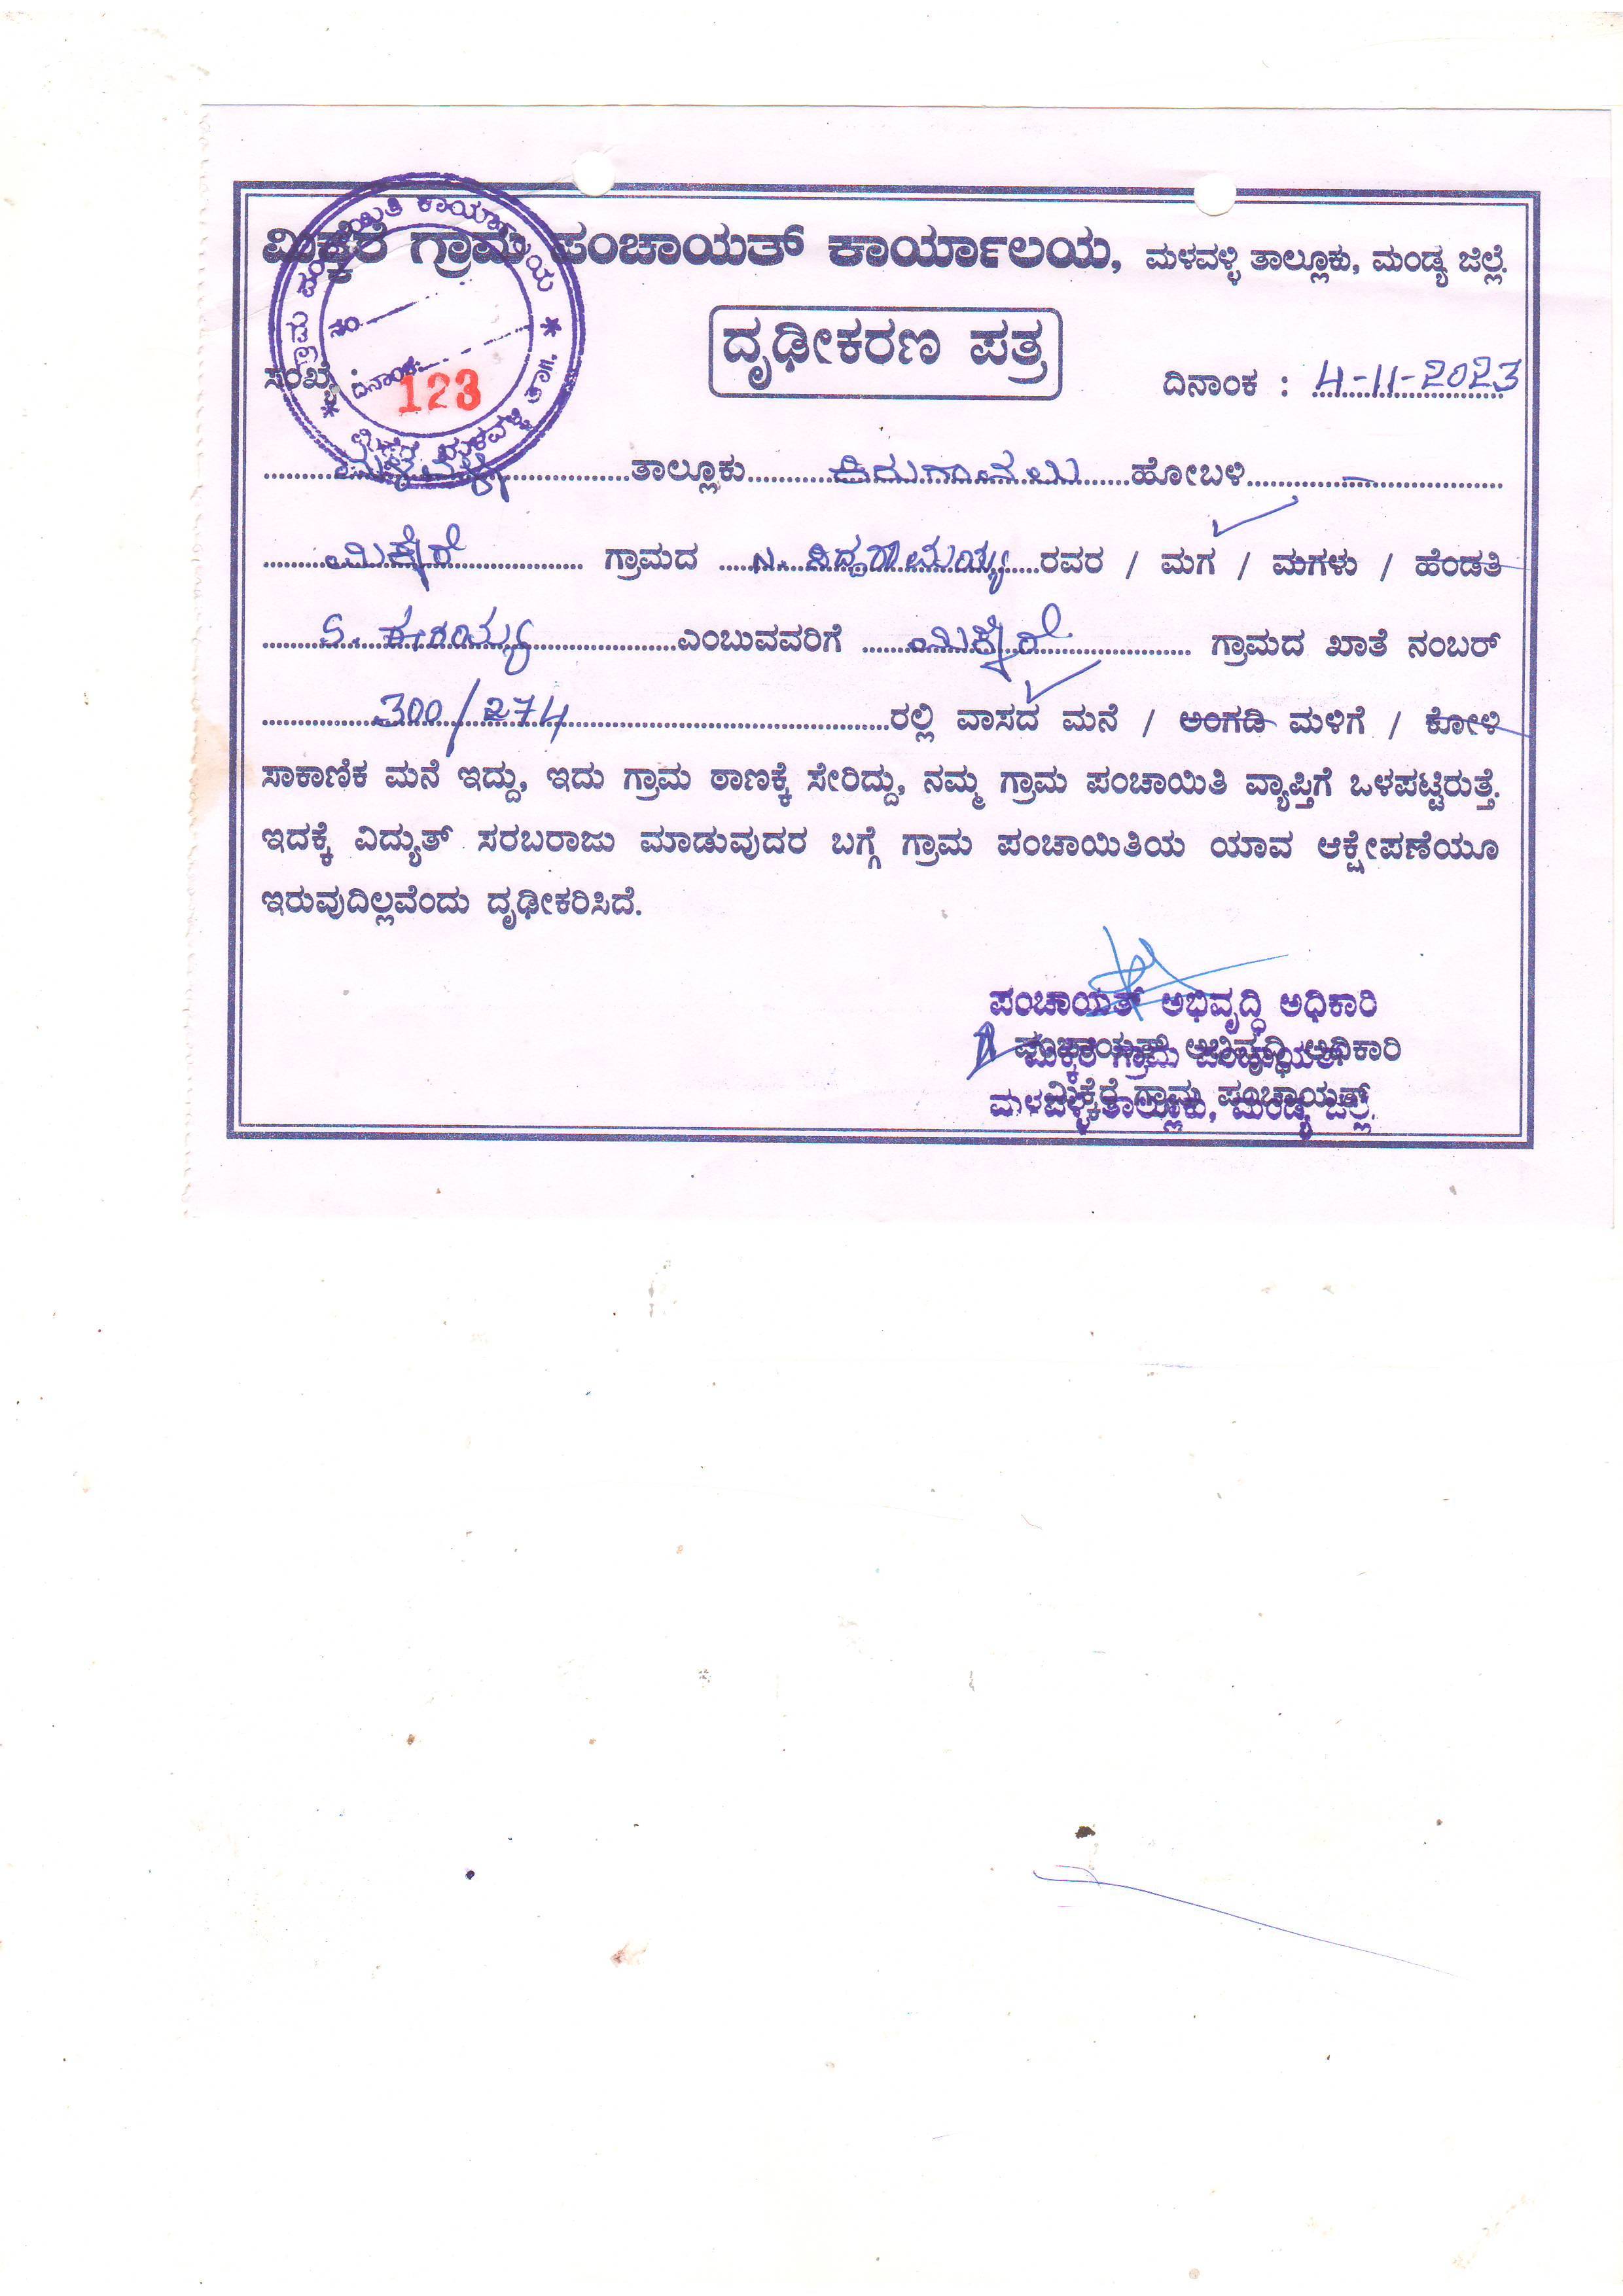 ಮಿಕ್ಕೆರೆ ಗ್ರಾಮ ಪಂಚಾಯತ್ ಕಾರ್ಯಾಲಯ, ಮಳವಳ್ಳಿ ತಾಲ್ಲೂಕು, ಮಂಡ್ಯ ಜಿಲ್ಲೆ.
ದೃಢೀಕರಣ ಪತ್ರ
ಸಂಖ್ಯೆ : 123
ದಿನಾಂಕ : 4-11-2023
ನಂ.
ದಿನಾಂಕ
ಮಳವಳ್ಳಿ ತಾಲ್ಲೂಕು ಕಿರುಗಾವಲು ಹೋಬಳಿ –
ಮಿಕ್ಕೆರೆ ಗ್ರಾಮದ ರವರ / ಮಗ / ಮಗಳು / ಹೆಂಡತಿ
ಎಂಬುವವರಿಗೆ ಮಿಕ್ಕೆರೆ ಗ್ರಾಮದ ಖಾತೆ ನಂಬರ್
300/274 ರಲ್ಲಿ ವಾಸದ ಮನೆ / ಅಂಗಡಿ ಮಳಿಗೆ / ಕೋಳಿ
ಸಾಕಾಣಿಕ ಮನೆ ಇದ್ದು, ಇದು ಗ್ರಾಮ ಠಾಣಕ್ಕೆ ಸೇರಿದ್ದು, ನಮ್ಮ ಗ್ರಾಮ ಪಂಚಾಯಿತಿ ವ್ಯಾಪ್ತಿಗೆ ಒಳಪಟ್ಟಿರುತ್ತೆ.
ಇದಕ್ಕೆ ವಿದ್ಯುತ್ ಸರಬರಾಜು ಮಾಡುವುದರ ಬಗ್ಗೆ ಗ್ರಾಮ ಪಂಚಾಯಿತಿಯ ಯಾವ ಆಕ್ಷೇಪಣೆಯೂ
ಇರುವುದಿಲ್ಲವೆಂದು ದೃಢೀಕರಿಸಿದೆ.
ಪಂಚಾಯತ್ ಅಭಿವೃದ್ಧಿ ಅಧಿಕಾರಿ
ಪಂಚಾಯತ್ ಅಭಿವೃದ್ಧಿ ಅಧಿಕಾರಿ
ಮಿಕ್ಕೆರೆ ಗ್ರಾಮ ಪಂಚಾಯತ್
ಮಳವಳ್ಳಿ ತಾಲ್ಲೂಕು, ಮಂಡ್ಯ ಜಿಲ್ಲೆ.